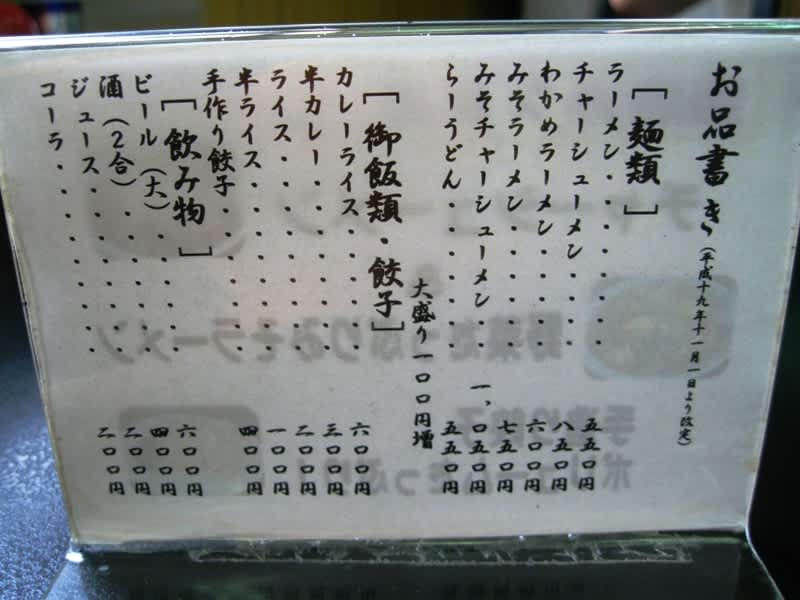 お品書き(平成十九年十一月一日より改定)
[麺類]
ラーメン・・・・・・・五五〇円
チャーシューメン・・・・八五〇円
わかめラーメン・・・・・六〇〇円
みそラーメン・・・・・・七五〇円
みそチャーシューメン・・一、〇五〇円
らーうどん・・・・・・・五五〇円
大盛り一〇〇円増
[御飯類・餃子]
カレーライス・・・・・・六〇〇円
半カレー・・・・・・・・三〇〇円
ライス・・・・・・・・・二〇〇円
半ライス・・・・・・・・一〇〇円
手作り餃子・・・・・・・四〇〇円
[飲み物]
ビール(大)・・・・・・六〇〇円
酒(2合)・・・・・・・四〇〇円
ジュース・・・・・・・・二〇〇円
コーラ・・・・・・・・・二〇〇円